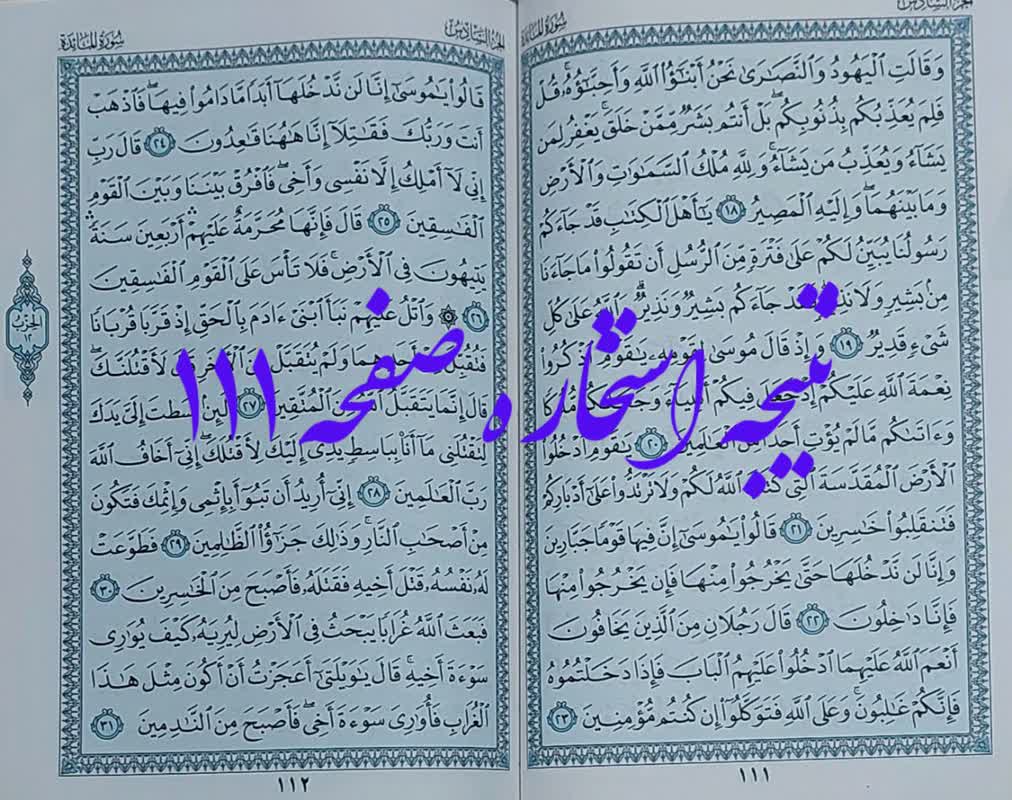 الجزء السادس سورة المائدة
وَقَالَتِ ٱلْيَهُودُ وَٱلنَّصَٰرَىٰ نَحْنُ أَبْنَٰٓؤُا۟ ٱللَّهِ وَأَحِبَّٰٓؤُهُۥۚ قُلْ
فَلِمَ يُعَذِّبُكُم بِذُنُوبِكُمۖ بَلْ أَنتُم بَشَرٌ مِّمَّنْ خَلَقَۚ يَغْفِرُ لِمَن
يَشَآءُ وَيُعَذِّبُ مَن يَشَآءُۚ وَلِلَّهِ مُلْكُ ٱلسَّمَٰوَٰتِ وَٱلْأَرْضِ
وَمَا بَيْنَهُمَاۖ وَإِلَيْهِ ٱلْمَصِيرُ ١٨ يَٰٓأَهْلَ ٱلْكِتَٰبِ قَدْ جَآءَكُمْ
رَسُولُنَا يُبَيِّنُ لَكُمْ عَلَىٰ فَتْرَةٍ مِّنَ ٱلرُّسُلِ أَن تَقُولُوا۟ مَا جَآءَنَا
مِنۢ بَشِيرٍ وَلَا نَذِيرٍۖ فَقَدْ جَآءَكُم بَشِيرٌ وَنَذِيرٌۗ وَٱللَّهُ عَلَىٰ كُلِّ
شَىْءٍ قَدِيرٌ ١٩ وَإِذْ قَالَ مُوسَىٰ لِقَوْمِهِۦ يَٰقَوْمِ ٱذْكُرُوا۟
نِعْمَةَ ٱللَّهِ عَلَيْكُمْ إِذْ جَعَلَ فِيكُمْ أَنۢبِيَآءَ وَجَعَلَكُم مُّلُوكًا
وَءَاتَىٰكُم مَّا لَمْ يُؤْتِ أَحَدًا مِّنَ ٱلْعَٰلَمِينَ ٢٠ يَٰقَوْمِ ٱدْخُلُوا۟
ٱلْأَرْضَ ٱلْمُقَدَّسَةَ ٱلَّتِى كَتَبَ ٱللَّهُ لَكُمْ وَلَا تَرْتَدُّوا۟ عَلَىٰٓ أَدْبَارِكُمْ
فَتَنقَلِبُوا۟ خَٰسِرِينَ ٢١ قَالُوا۟ يَٰمُوسَىٰٓ إِنَّ فِيهَا قَوْمًا جَبَّارِينَ
وَإِنَّا لَن نَّدْخُلَهَا حَتَّىٰ يَخْرُجُوا۟ مِنْهَا فَإِن يَخْرُجُوا۟ مِنْهَا
فَإِنَّا دَٰخِلُونَ ٢٢ قَالَ رَجُلَانِ مِنَ ٱلَّذِينَ يَخَافُونَ
أَنْعَمَ ٱللَّهُ عَلَيْهِمَا ٱدْخُلُوا۟ عَلَيْهِمُ ٱلْبَابَ فَإِذَا دَخَلْتُمُوهُ
فَإِنَّكُمْ غَٰلِبُونَۚ وَعَلَى ٱللَّهِ فَتَوَكَّلُوٓا۟ إِن كُنتُم مُّؤْمِنِينَ ٢٣
١١١
الجزء السادس سورة المائدة
قَالُوا۟ يَٰمُوسَىٰٓ إِنَّا لَن نَّدْخُلَهَآ أَبَدًا مَّا دَامُوا۟ فِيهَاۖ فَٱذْهَبْ
أَنتَ وَرَبُّكَ فَقَٰتِلَآ إِنَّا هَٰهُنَا قَٰعِدُونَ ٢٤ قَالَ رَبِّ
إِنِّى لَآ أَمْلِكُ إِلَّا نَفْسِى وَأَخِىۖ فَٱفْرُقْ بَيْنَنَا وَبَيْنَ ٱلْقَوْمِ
ٱلْفَٰسِقِينَ ٢٥ قَالَ فَإِنَّهَا مُحَرَّمَةٌ عَلَيْهِمْۛ أَرْبَعِينَ سَنَةًۛ
يَتِيهُونَ فِى ٱلْأَرْضِۚ فَلَا تَأْسَ عَلَى ٱلْقَوْمِ ٱلْفَٰسِقِينَ
٢٦ ۞ وَٱتْلُ عَلَيْهِمْ نَبَأَ ٱبْنَىْ ءَادَمَ بِٱلْحَقِّ إِذْ قَرَّبَا قُرْبَانًا
فَتُقُبِّلَ مِنْ أَحَدِهِمَا وَلَمْ يُتَقَبَّلْ مِنَ ٱلْءَاخَرِ قَالَ لَأَقْتُلَنَّكَۖ
قَالَ إِنَّمَا يَتَقَبَّلُ ٱللَّهُ مِنَ ٱلْمُتَّقِينَ ٢٧ لَئِنۢ بَسَطتَ إِلَىَّ يَدَكَ
لِتَقْتُلَنِى مَآ أَنَا۠ بِبَاسِطٍ يَدِىَ إِلَيْكَ لِأَقْتُلَكَۖ إِنِّىٓ أَخَافُ ٱللَّهَ
رَبَّ ٱلْعَٰلَمِينَ ٢٨ إِنِّىٓ أُرِيدُ أَن تَبُوٓأَ بِإِثْمِى وَإِثْمِكَ فَتَكُونَ
مِنْ أَصْحَٰبِ ٱلنَّارِۚ وَذَٰلِكَ جَزَٰٓؤُا۟ ٱلظَّٰلِمِينَ ٢٩ فَطَوَّعَتْ
لَهُۥ نَفْسُهُۥ قَتْلَ أَخِيهِ فَقَتَلَهُۥ فَأَصْبَحَ مِنَ ٱلْخَٰسِرِينَ ٣٠
فَبَعَثَ ٱللَّهُ غُرَابًا يَبْحَثُ فِى ٱلْأَرْضِ لِيُرِيَهُۥ كَيْفَ يُوَٰرِى
سَوْءَةَ أَخِيهِۚ قَالَ يَٰوَيْلَتَىٰٓ أَعَجَزْتُ أَنْ أَكُونَ مِثْلَ هَٰذَا
ٱلْغُرَابِ فَأُوَٰرِىَ سَوْءَةَ أَخِىۖ فَأَصْبَحَ مِنَ ٱلنَّٰدِمِينَ ٣١
١١٢
الحزب
١٢
نتیجه استخاره صفحه ۱۱۱